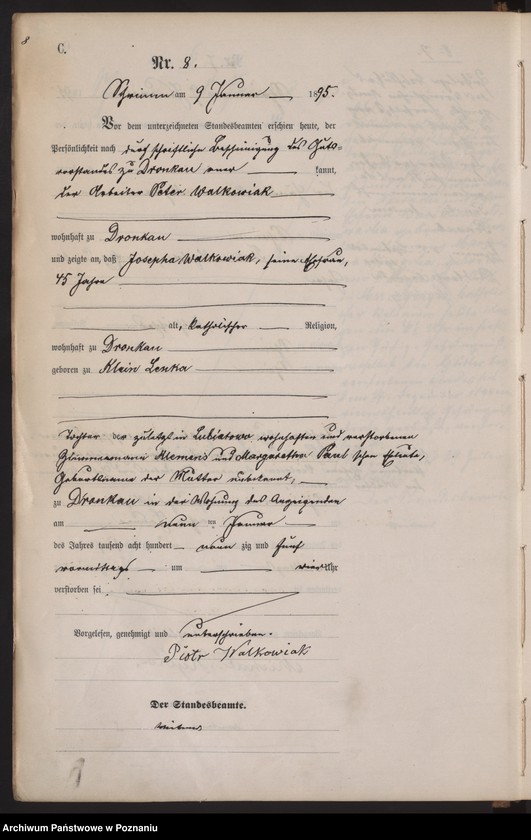 8
C.
Nr. 8.
Schrimm am 9 Januar 1895.
Vor dem unterzeichneten Standesbeamten erschien heute, der
Persönlichkeit nach durch schriftliche Bescheinigung des Guts-
vorstandes zu Dronkau kannt,
der Arbeiter Peter Walkowiak
wohnhaft zu Dronkau
und zeigte an, daß Josepha Walkowiak, seine Ehefrau,
45 Jahre
alt, katholischer Religion,
wohnhaft zu Dronkau
geboren zu Klein Lenka
Tochter der zuletzt in Lubiatowo wohnhaften und verstorbenen
Klemens und Margaretha Paul schen Eheleute,
Geburtsname der Mutter unbekannt,
zu Dronkau in der Wohnung des Anzeigenden
am neun ten Januar
des Jahres tausend acht hundert neun zig und fünf
vormittags um vier Uhr
verstorben sei
Vorgelesen, genehmigt und unterschrieben.
Piotr Walkowiak
Der Standesbeamte.
Archiwum Państwowe w Poznaniu